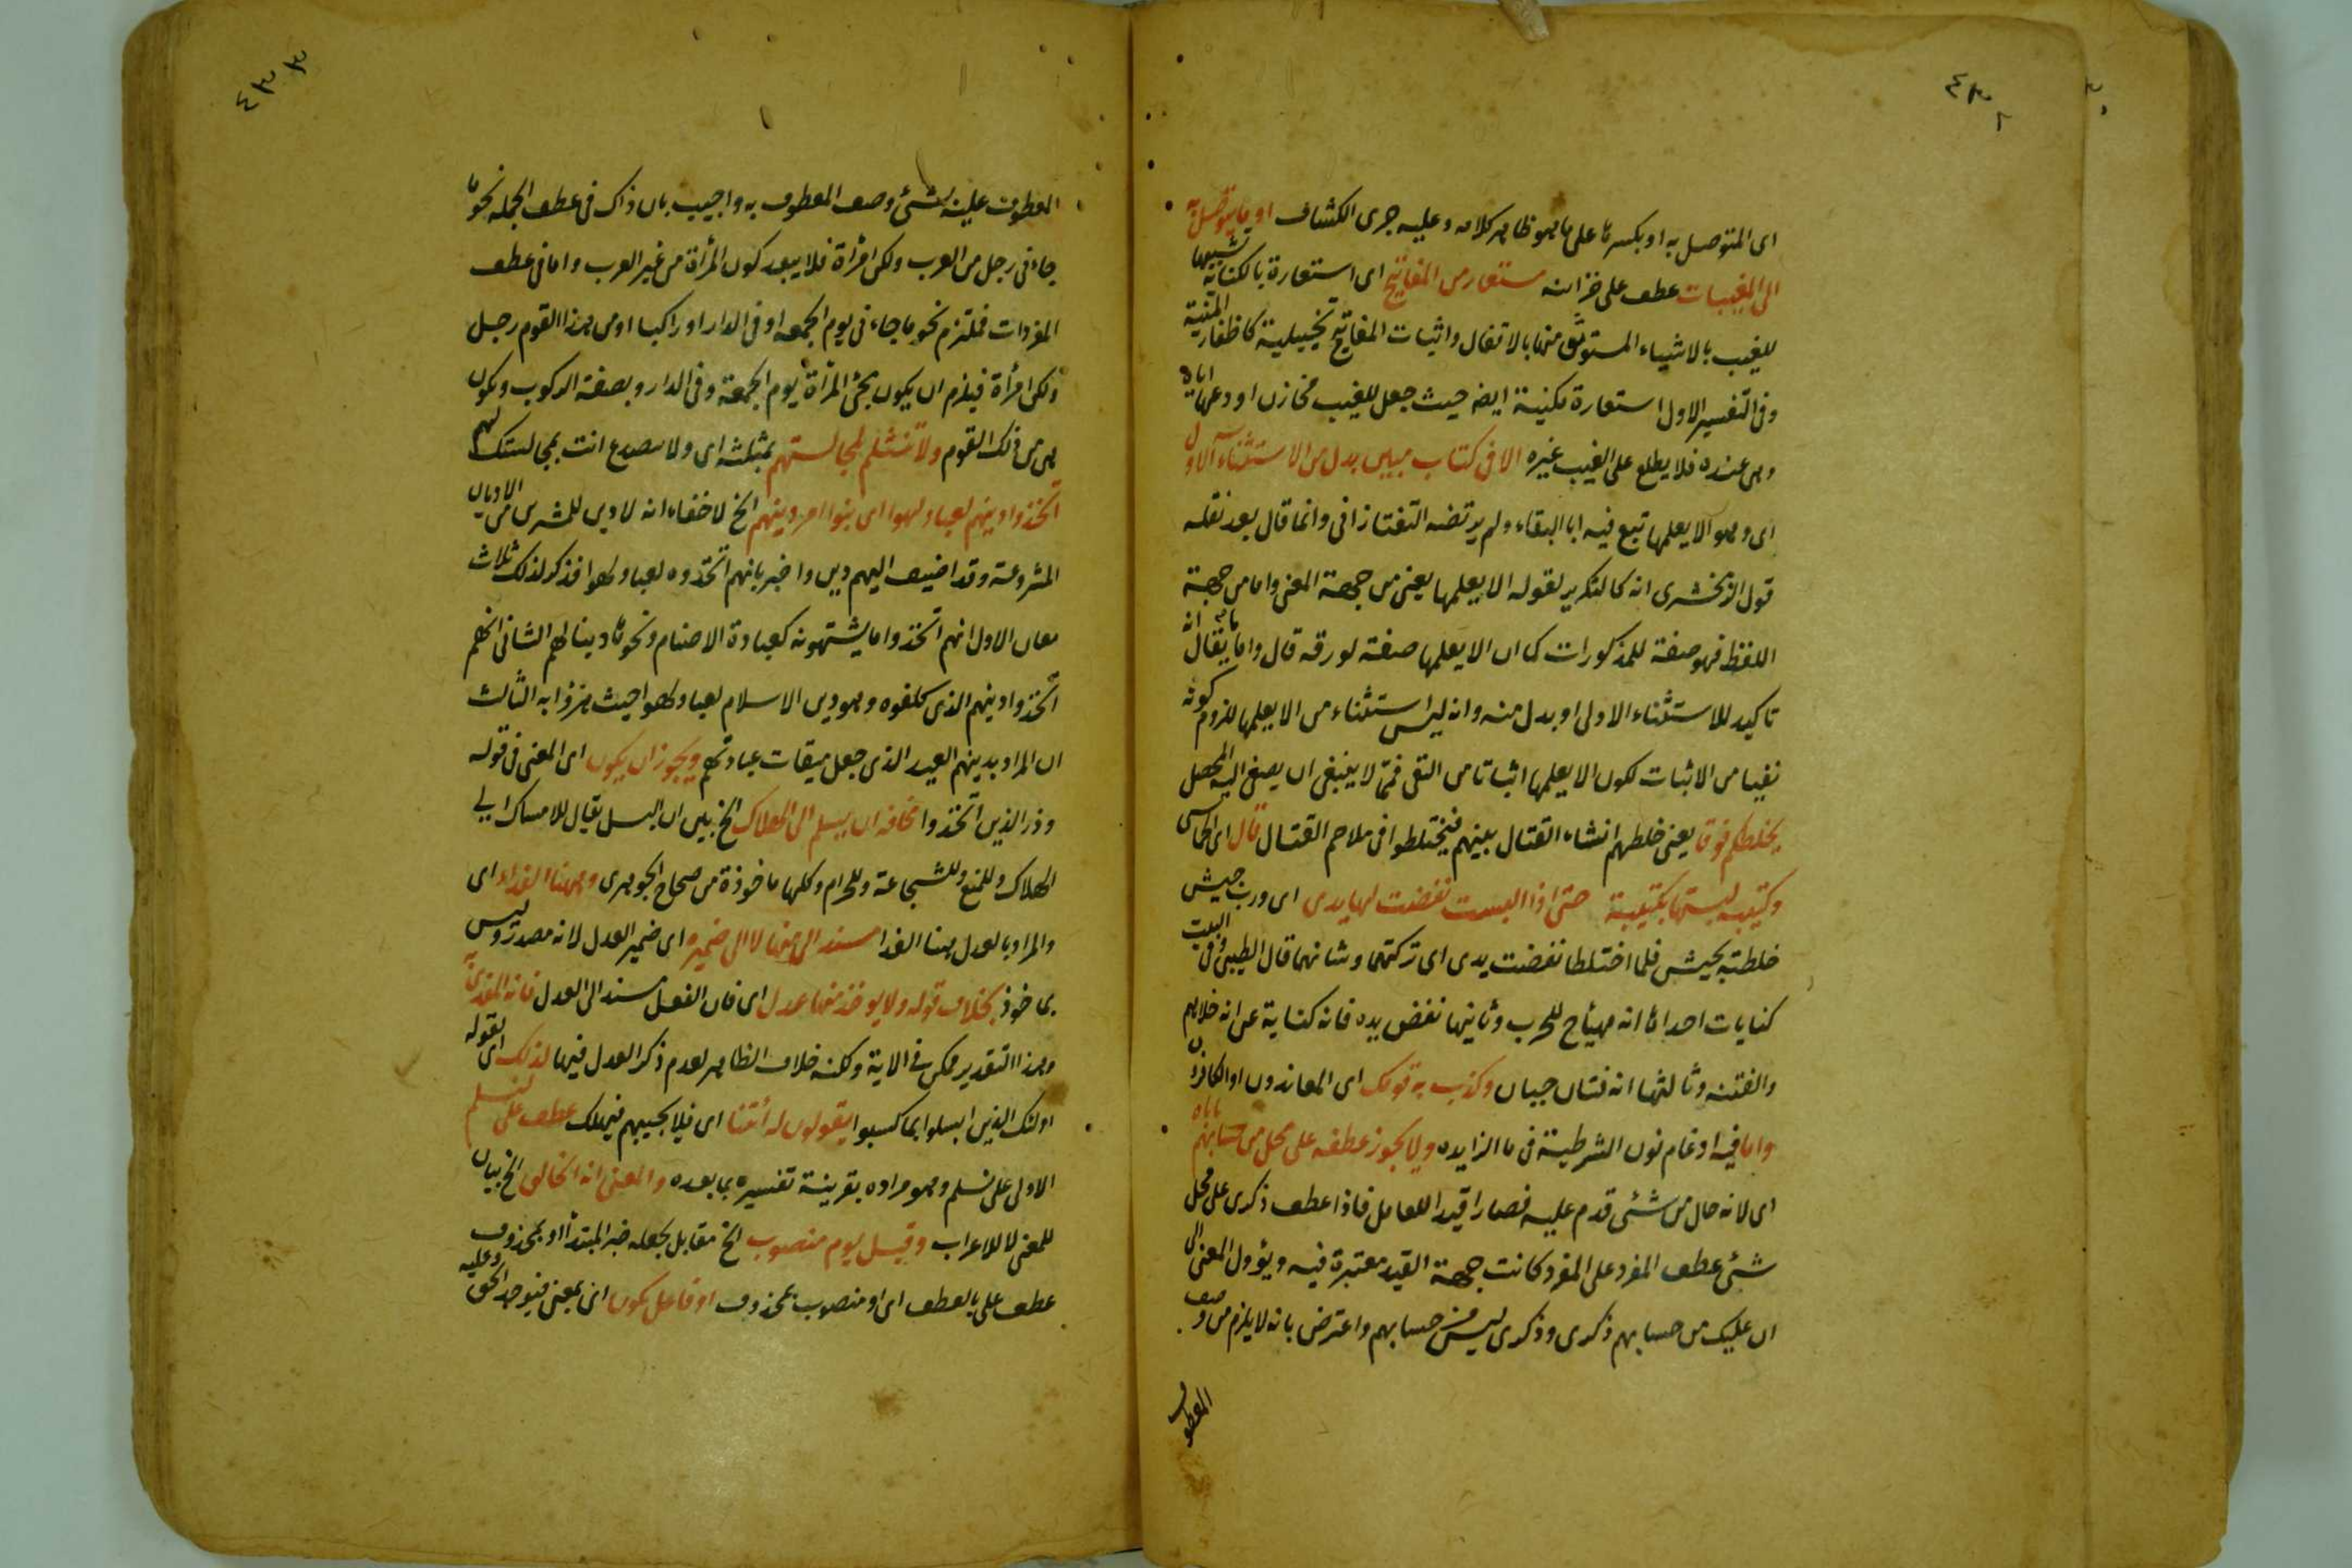 ٤٣٢
اى المتوصل به او بكسرها على ما هو ظاهر كلامه وعليه جرى الكشاف او ما يتوصل به
الى المغيبات عطف على خزاينه مستعار من المفاتيح اى استعارة بالكناية تشبيها
للغيب بالاشياء المستوثق منها بالاقفال واثبات المفاتيح تخييلية كاظفار المنية
وفى التفسير الاول استعارة مكنية ايضه حيث جعل للغيب مخازن اودعها اياه
وهى عنده فلا يطلع على الغيب غيره الا فى كتاب مبين بدل من الاستثناء الاول
اى وهو الا يعلمها تبع فيه ابا البقاء ولم يرتضه التفتازانى وانما قال بعد نقله
قول الزمخشرى انه كالتكرير لقوله الا يعلمها يعنى من جهة المعنى واما من جهة
اللفظ فهو صفة للمذكورات كما ان الا يعلمها صفة لورقه قال واما ما يقال انه
تاكيد للاستثناء الاولى او بدل منه وانه ليس استثناء من الا يعلمها للزوم كونه
نفيا من الاثبات لكون الا يعلمها اثباتا من النفى فمما لا ينبغى ان يصغى اليه المحصل
يخلطكم فرقا يعنى خلطهم انشاء القتال بينهم فيختلطوا فى ملاحم القتال قال اى الحماسى
وكتيبه لبستها بكتيبة حتى اذا التبست نفضت لها يدى اى ورب جيش
خلطته بجيش فلما اختلطا نفضت يدى اى تركتهما وشانهما قال الطيبى وفى البيت
كنايات احداها انه مهياج للحرب وثانيها نفض يده فانه كناية عن انه خلاهم
والفتنه وثالثها انه فتان جبان وكذب به قومك اى المعاندون او الكافرون
واما فيه ادغام نون الشرطية فى ما الزايده ولا يجوز عطفه على محل من شئ ياباه من حسابهم
اى لانه حال من شئى قدم عليه فصار قيدا للعامل فاذا عطف ذكرى على محل
شئى عطف المفرد على المفرد كانت جهة القيد معتبرة فيه ويؤول المعنى الى
ان عليك من حسابهم ذكرى وذكرى ليس من حسابهم واعترض بانه لا يلزم من وصف
المعطوف
٤٣٣
المعطوف عليه بشئ وصف المعطوف به واجيب بان ذاك فى عطف الجمله نحو ما
جاءنى رجل من العرب ولكن امرأة فلا يبعد كون المرأة من غير العرب واما فى عطف
المفردات فملتزم نحو ما جاءنى يوم الجمعه او فى الدار او راكبا او من هذا القوم رجل
ولكن امرأة فيلزم ان يكون مجئ المرأة يوم الجمعة وفى الدار وبصفة الركوب وتكون
هى من ذلك القوم ولا تنثلم لمجالستهم بمثلثه اى ولا تنصدع انت بمجالستك لهم
اتخذوا دينهم لعبا ولهوا اى بنوا امر دينهم الخ لا خفاء انه لا دين للمشركين من الاديان
المشروعة وقد اضيف اليهم دين واخبر بانهم اتخذوه لعبا ولهوا فذكر لذلك ثلاث
معان الاول انهم اتخذوا ما يشتهونه كعبادة الاصنام ونحوها دينا لهم الثانى انهم
اتخذوا دينهم الذى كلفوه وهو دين الاسلام لعبا ولهوا حيث هزؤا به الثالث
ان المراد بدينهم العيد الذى جعل ميقات عبادتهم ويجوز ان يكون اى المعنى فى قوله
وذر الذين اتخذوا مخافه ان يسلم الى الهلاك الخ بين ان البسل يقال للامساك اى
الهلاك وللمنع وللشجاعة وللحرام وكلها ماخوذة من صحاح الجوهرى وههنا الفداء اى
والمراد بالعدل هنا الفدا مسند الى منها لا الى ضميره اى ضمير العدل لانه مصدر وليس
بماخوذ بخلاف قوله ولا يوخذ منها عدل اى فان الفعل مسند الى العدل فانه المفدى به
وهذا التقدير ممكن فى الاية ولكنه خلاف الظاهر لعدم ذكر العدل فيها لذلك اى بقوله
اولئك الذين ابسلوا بما كسبوا يقولون له ائتنا اى فلا يجيبهم فيهلك عطف على لنسلم
الاولى على نسلم وهو مراده بقرينة تفسيره بما بعده والمعنى انه الخالق الخ بيان
للمعنى لا للاعراب وقيل يوم منصوب الخ مقابل لجعله خبر المبتدأ او بمحذوف
عطف على بالعطف اى او منصوب بمحذوف او فاعل يكون اى بمعنى فيوجد الحق وعليه